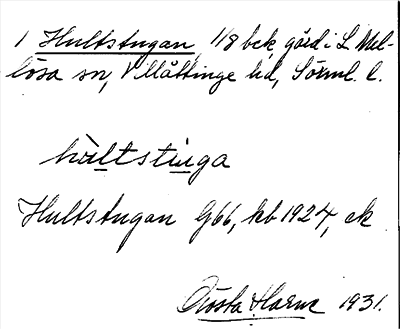 1 Hultstugan, 1/8 bck, gård i L. Mel-
lösa sn, Villåttinge hd, Södml. l.
hùltstùga
Hultstugan G66, kb 1924, ek
Gösta Harne 1931.